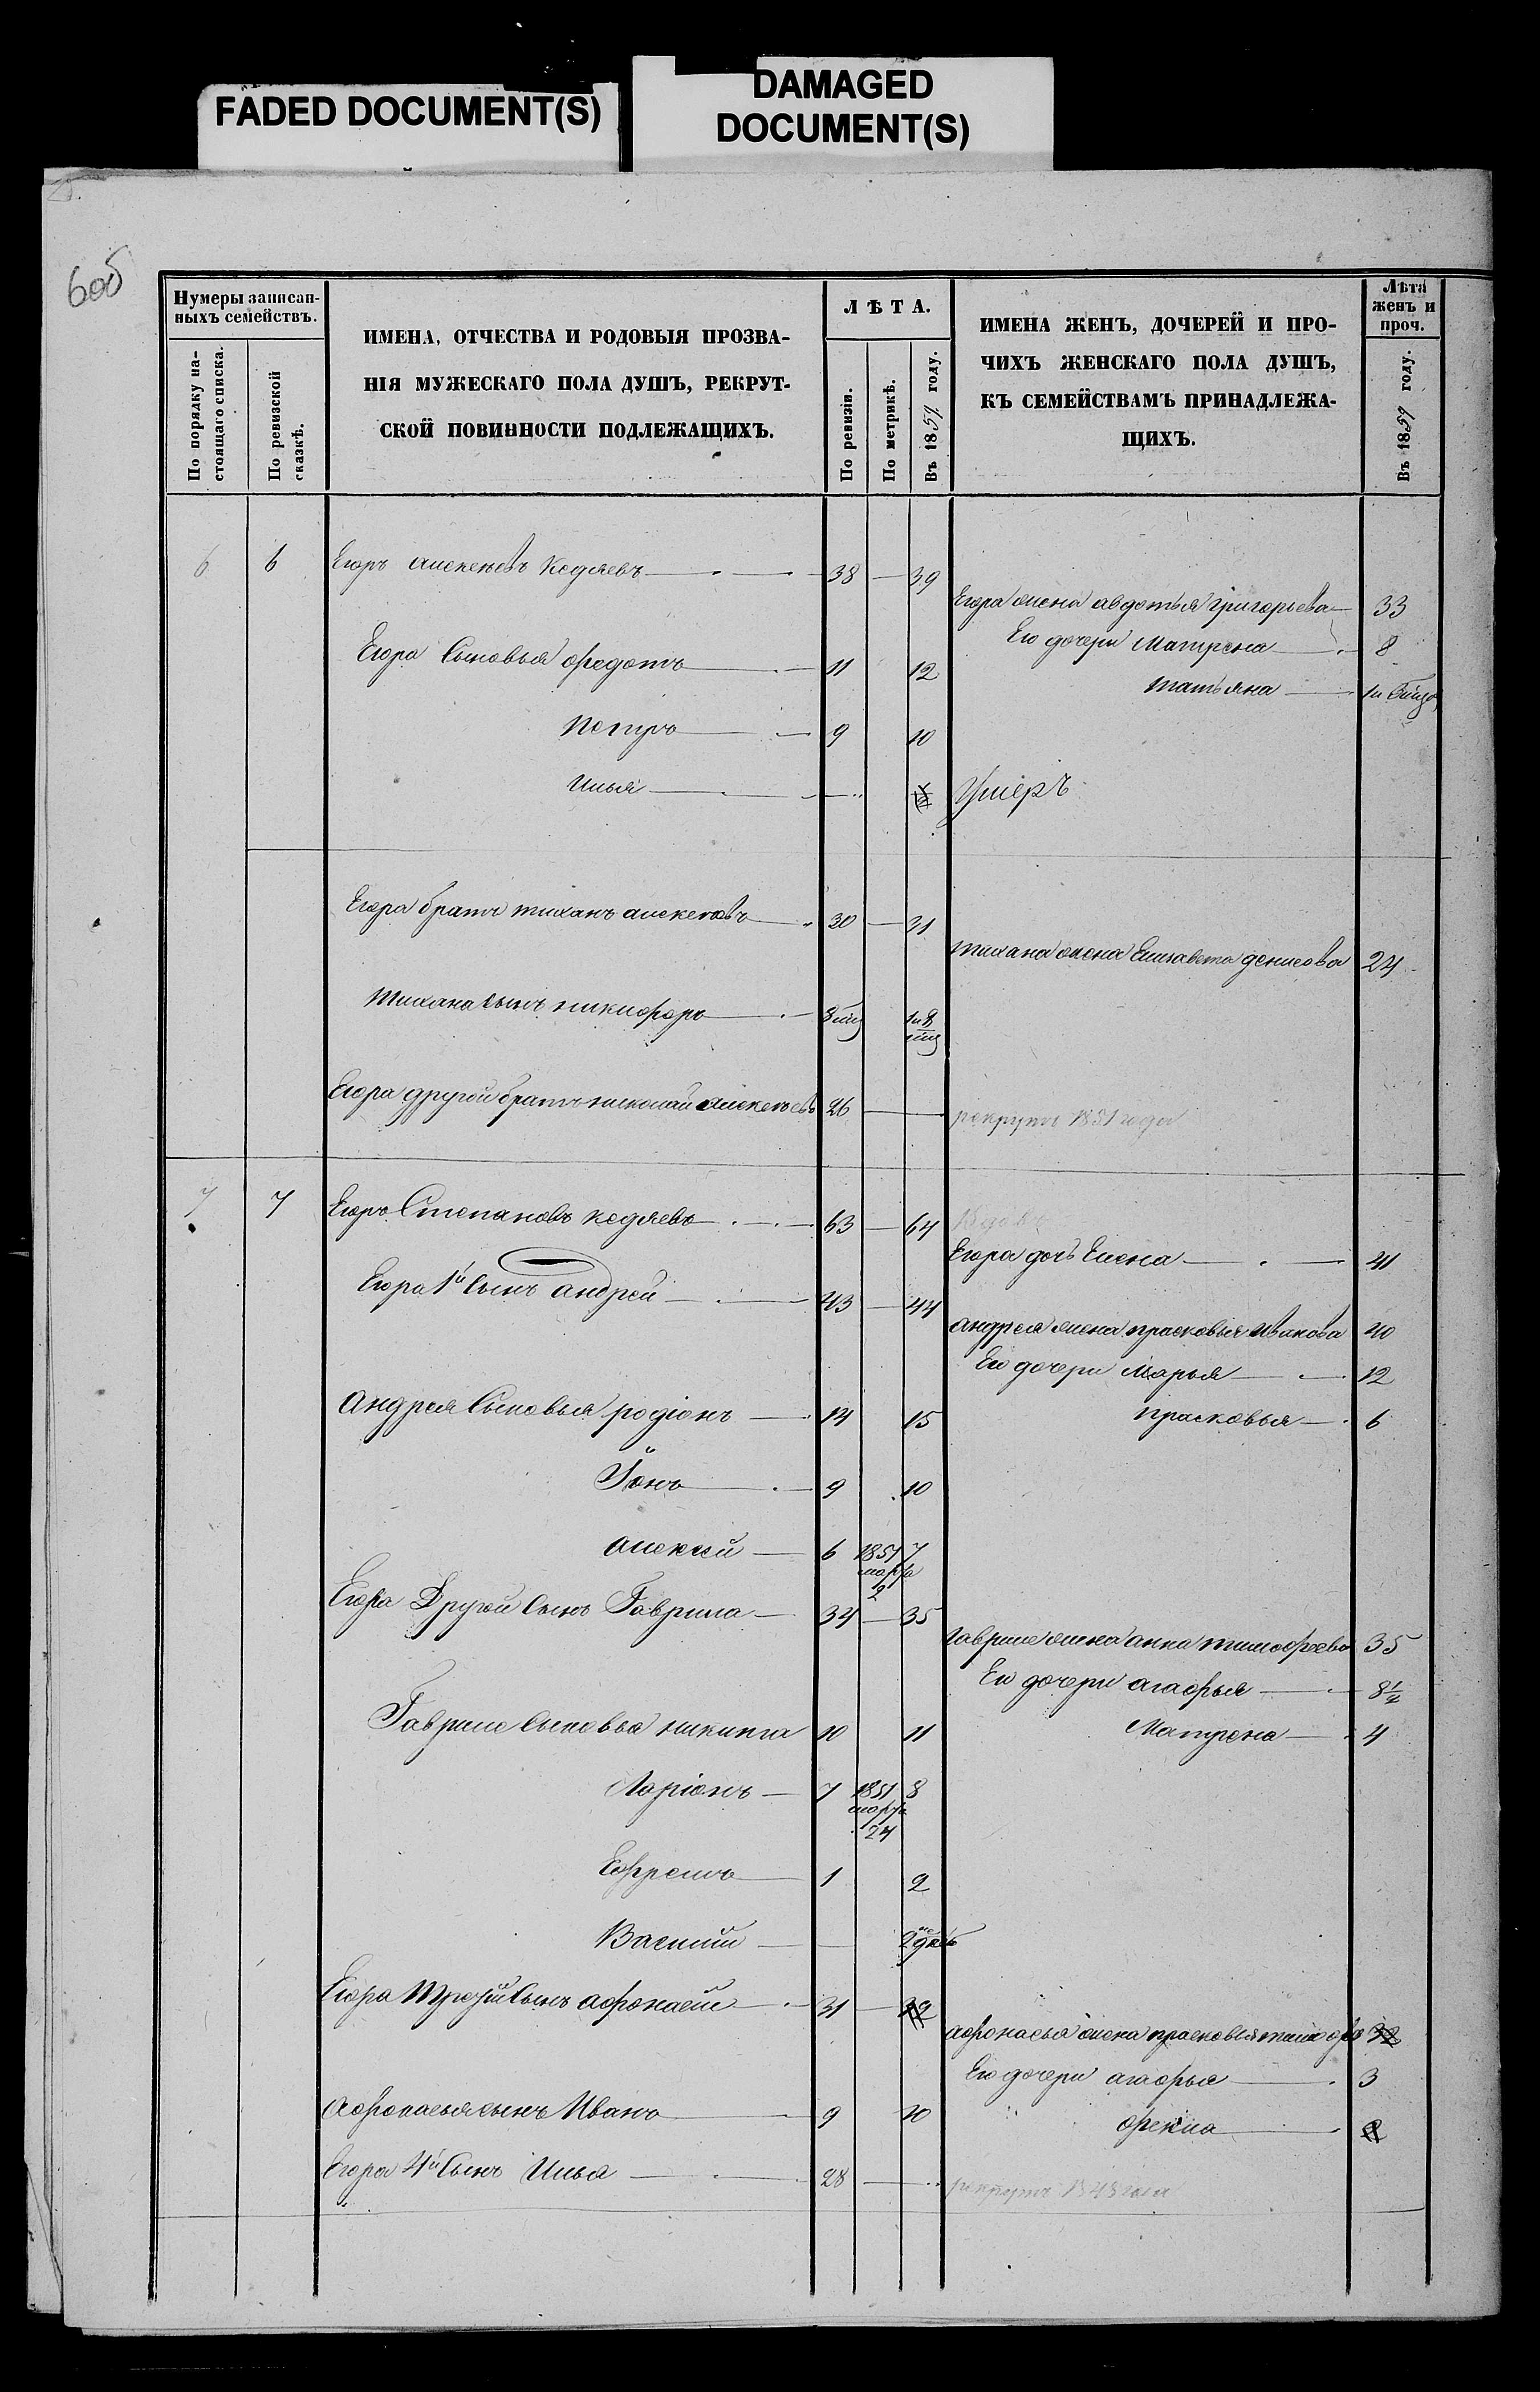 FADED DOCUMENT(S)
DAMAGED
DOCUMENT(S)
6об
Нумеры записан-
ныхъ семействъ.
По порядку на-
стоящаго списка.
По ревизской
сказкѣ.
ИМЕНА, ОТЧЕСТВА И РОДОВЫЯ ПРОЗВА-
НІЯ МУЖЕСКАГО ПОЛА ДУШЪ, РЕКРУТ-
СКОЙ ПОВИННОСТИ ПОДЛЕЖАЩИХЪ.
ЛѢТА.
По ревизіи.
По метрикѣ.
Въ 1859 году.
ИМЕНА ЖЕНЪ, ДОЧЕРЕЙ И ПРО-
ЧИХЪ ЖЕНСКАГО ПОЛА ДУШЪ,
КЪ СЕМЕЙСТВАМЪ ПРИНАДЛЕЖА-
ЩИХЪ.
Лѣта
женъ и
проч.
Въ 1859 году.
6 6 Егоръ Кедяевъ 38 39
Егора жена авдотья григорьева 33
Его дочери Матрена 8
Егора Сыновья федотъ 11 12
татьяна 1 и 6 мѣс
петръ 9 10
Илья Умеръ
Егора братъ тиханъ 30 31
тихана жена Елизавета денисова 24
тихана сынъ никифоръ 8 мѣс 1 и 8 мѣс
Егора другой братъ николай 26 рекрутъ 1851 года
7 7 Егоръ Степановъ кедяевъ 63 64
Егора дочь Елена 41
Егора 1й Сынъ андрей 43 44
андрея жена прасковья Иванова 40
Его дочери Марья 12
Андрея Сыновья родіонъ 14 15 прасковья 6
Іонъ 9 10
алексей 6 1851 марта 2 7
Егора Другой Сынъ Гаврила 34 35
гаврилы жена анна тимофеева 35
Его дочери агафья 8½
Гаврилы Сыновья никита 10 11 Матрена 4
Ларіонъ 7 1851 марта 24 8
Ефремъ 1 2
Василий
Егора Третій Сынъ афонасей 31 32
афонасья жена прасковья 32
Его дочери агафья 3
Афонасья сынъ Иванъ 9 10
фекла
Егора 4й Сынъ Илья 28 рекрутъ 1848 года